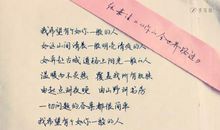 我希望有个如你一般的人
如这山间清晨一般明亮清爽的人
如奔赴古城道路上阳光一般的人
温暖而不炙热 覆盖我所有肌肤
由起点到夜晚 由山野到书房
一切问题的答案都很简单
我希望有个如你一般的人
张嘉佳《从你的全世界路过》